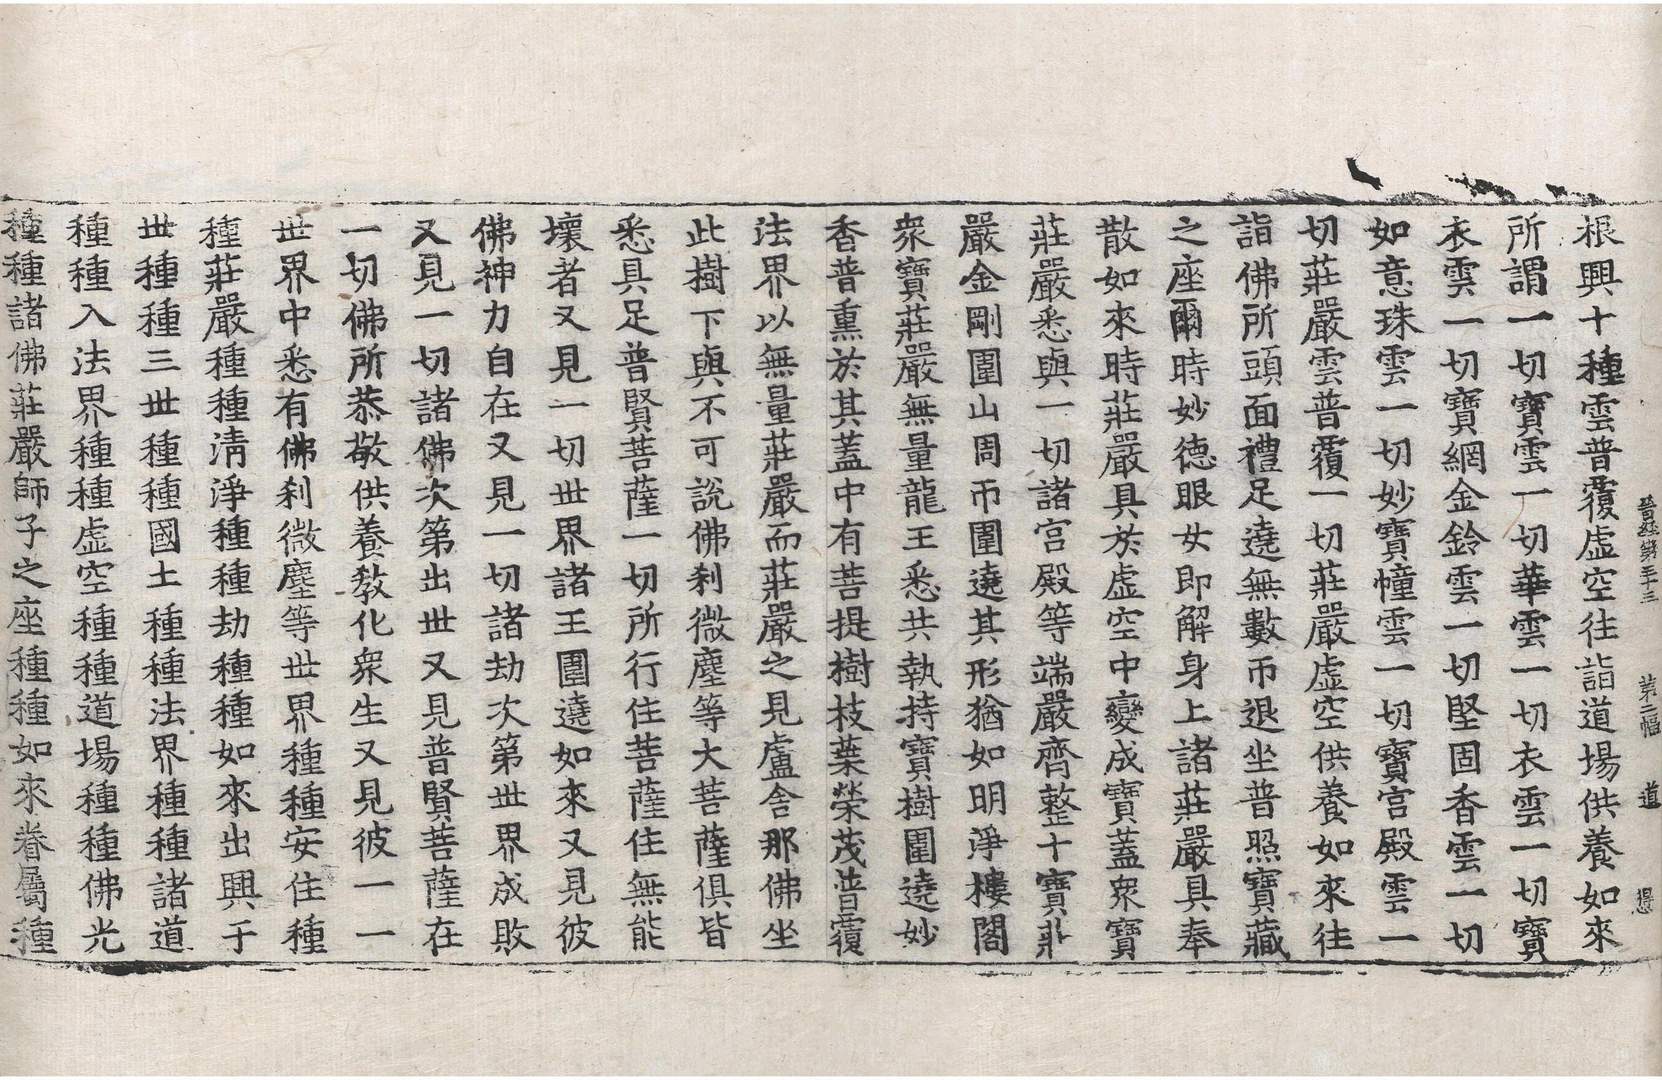 晉經第五十三　第二幅　道
根興十種雲普覆虛空往詣道場供養如來
所謂一切寶雲一切華雲一切衣雲一切寶
衣雲一切寶網金鈴雲一切堅固香雲一切
如意珠雲一切妙寶幢雲一切寶宮殿雲一
切莊嚴雲普覆一切莊嚴虛空供養如來往
詣佛所頭面禮足遶無數帀退坐普照寶藏
之座爾時妙德眼女即解身上諸莊嚴具奉
散如來時莊嚴具於虛空中變成寶蓋衆寶
莊嚴悉與一切諸宮殿等端嚴齊整十寶莊
嚴金剛圍山周帀圍遶其形猶如明淨樓閣
衆寶莊嚴無量龍王悉共執持寶樹圍遶妙
香普熏於其蓋中有菩提樹枝葉榮茂普覆
法界以無量莊嚴而莊嚴之見盧舍那佛坐
此樹下與不可說佛刹微塵等大菩薩俱皆
悉具足普賢菩薩一切所行住菩薩住無能
壞者又見一切世界諸王圍遶如來又見彼
佛神力自在又見一切諸劫次第世界成敗
又見一切諸佛次第出世又見普賢菩薩在
一切佛所恭敬供養教化衆生又見彼一一
世界中悉有佛刹微塵等世界種種安住種
種莊嚴種種清淨種種劫種種如來出興于
世種種三世種種國土種種法界種種諸道
種種入法界種種虛空種種道場種種佛光
種種諸佛莊嚴師子之座種種如來眷屬種